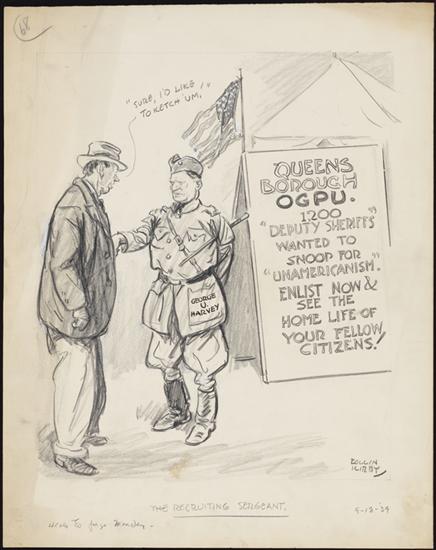 68
"SURE, I'D LIKE
TO KETCH 'UM."
QUEENS
BOROUGH
OGPU.
1200
"DEPUTY SHERIFFS"
WANTED TO
SNOOP FOR
"UNAMERICANISM."
ENLIST NOW &
SEE THE
HOME LIFE OF
YOUR FELLOW
CITIZENS!
GEORGE
U.
HARVEY
ROLLIN
KIRBY
THE RECRUITING SERGEANT.